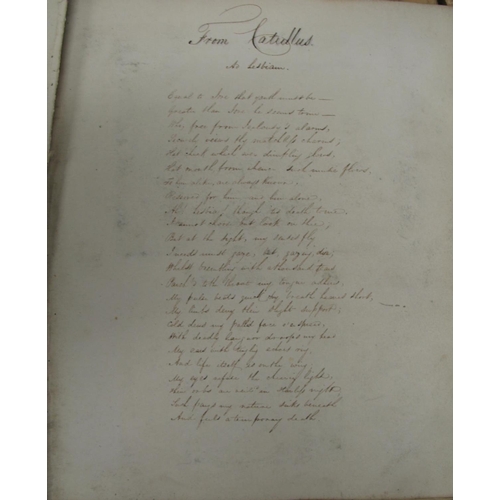 From Catullus.
Ad Lesbiam.
Equal to Jove that youth must be —
Greater than Jove he seems to me —
Who, free from Jealousy's alarms,
Securely views thy matchless charms;
That cheek which ever dimpling glows,
That mouth from whence such music flows,
To him alike, are always known,
Reserved for him, and him alone.
Ah! Lesbia! though 'tis death to me,
I cannot choose but look on thee;
But at the sight, my senses fly
I needs must gaze, but gazing die;
Whilst trembling with a thousand fears
Parch'd to the throat my tongue adheres,
My pulse beats quick, my breath heaves short,
My limbs deny their slight support;
Cold dews my pallid face o'erspread,
With deadly languor droops my head
My ears with tingling echoes ring
And life itself is on the wing
My eyes refuse the cheering light,
Their orbs are veil'd in starless night;
Such pangs my nature sinks beneath
And feels a temporary death